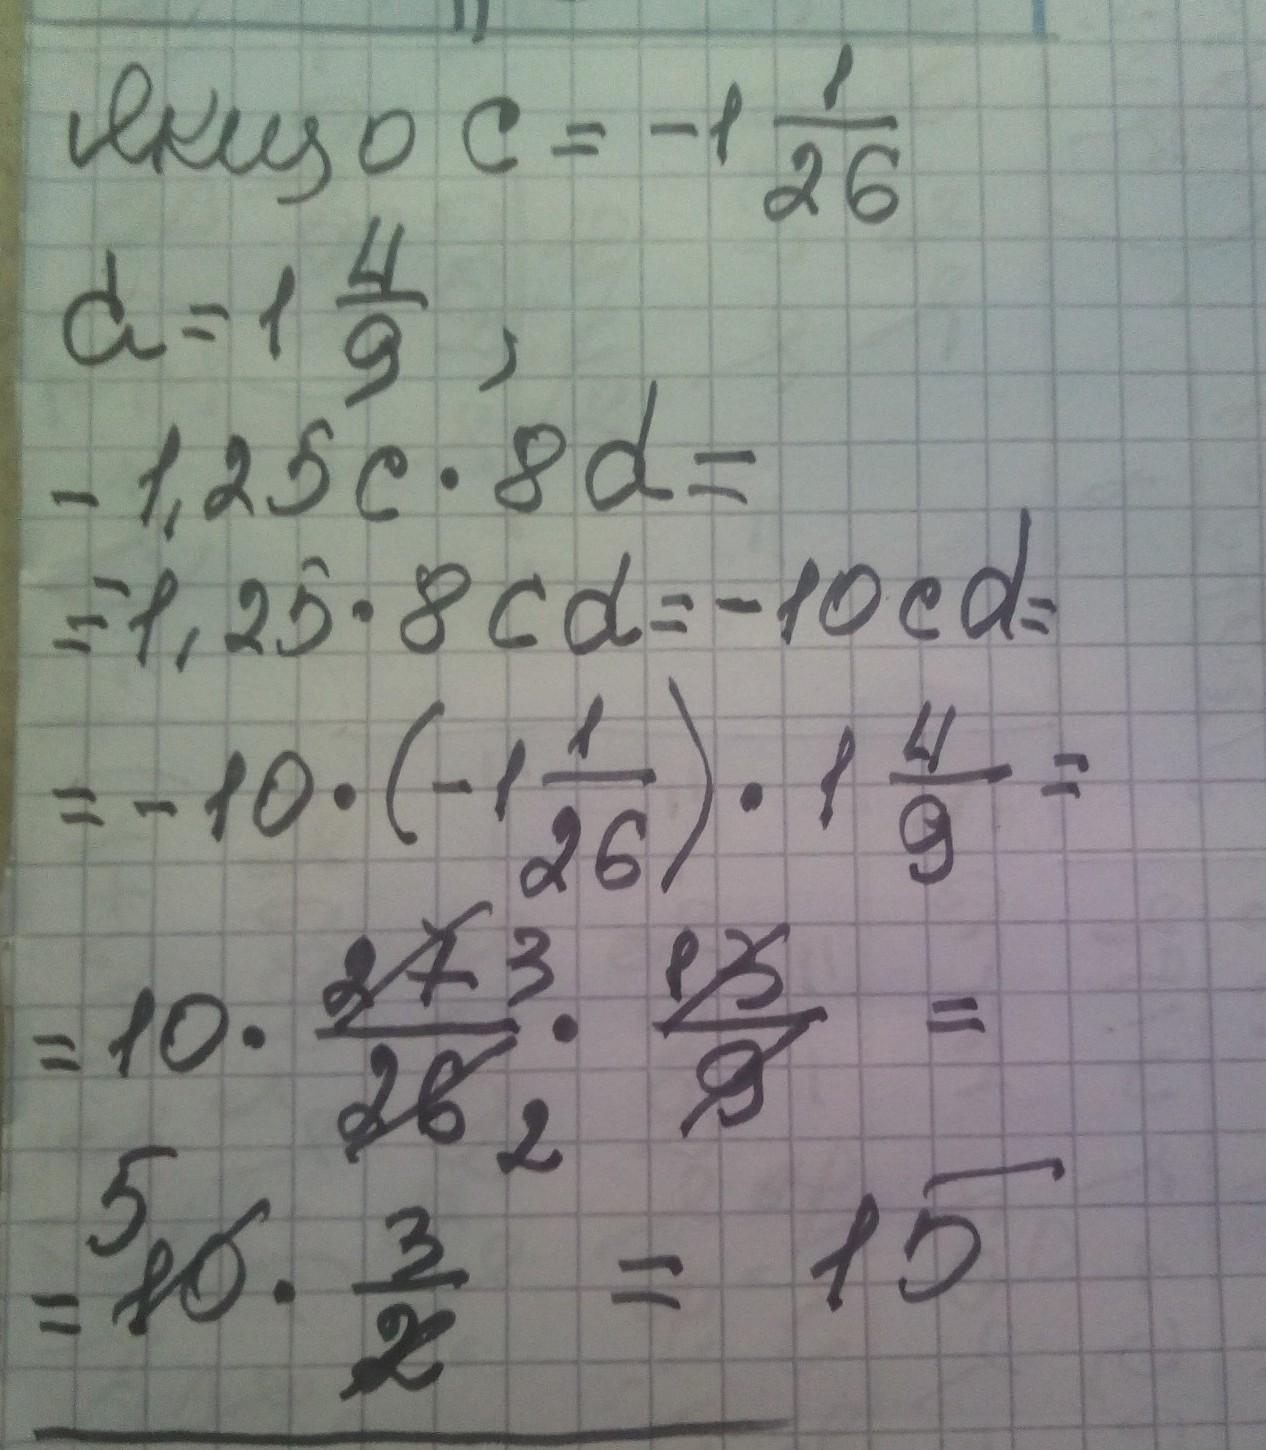 Якщо c = -1 1/26
d = 1 4/9 ,
- 1,25 c · 8 d =
= -1,25 · 8 c d = -10 c d =
= -10 · (-1 1/26) · 1 4/9 =
= 10 · 27/26 3 2 · 13/9 =
= 5 10 · 3/2 = 15